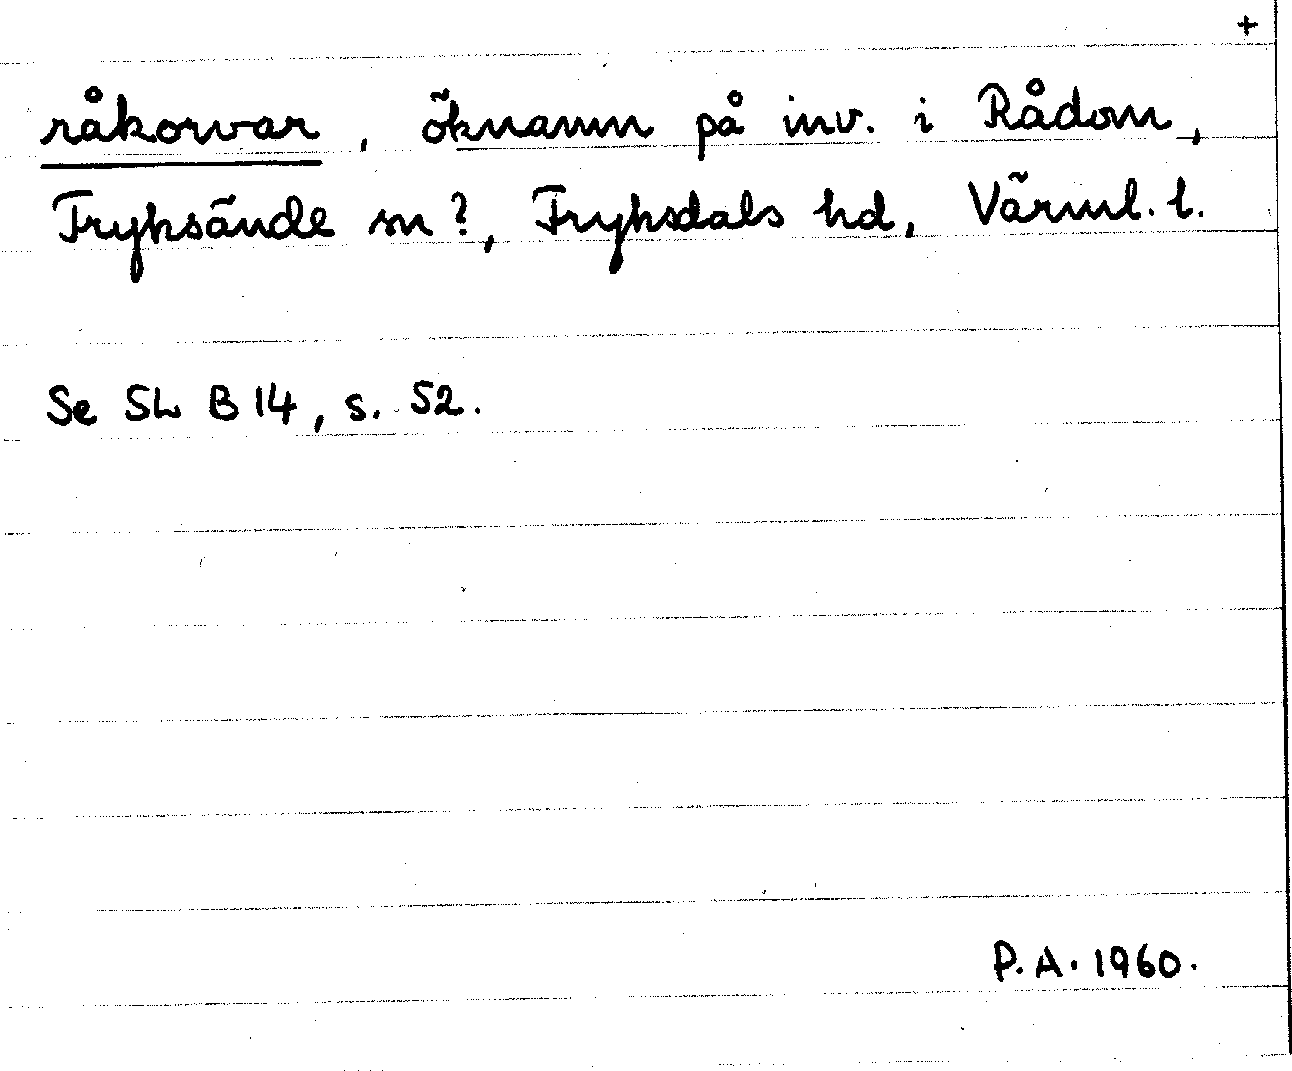 +
råkorvar, öknamn på inv. i Rådom,
Fryksände sn?, Fryksdals hd, Värml. l.
Se SL B 14, s. 52.
P.A. 1960.